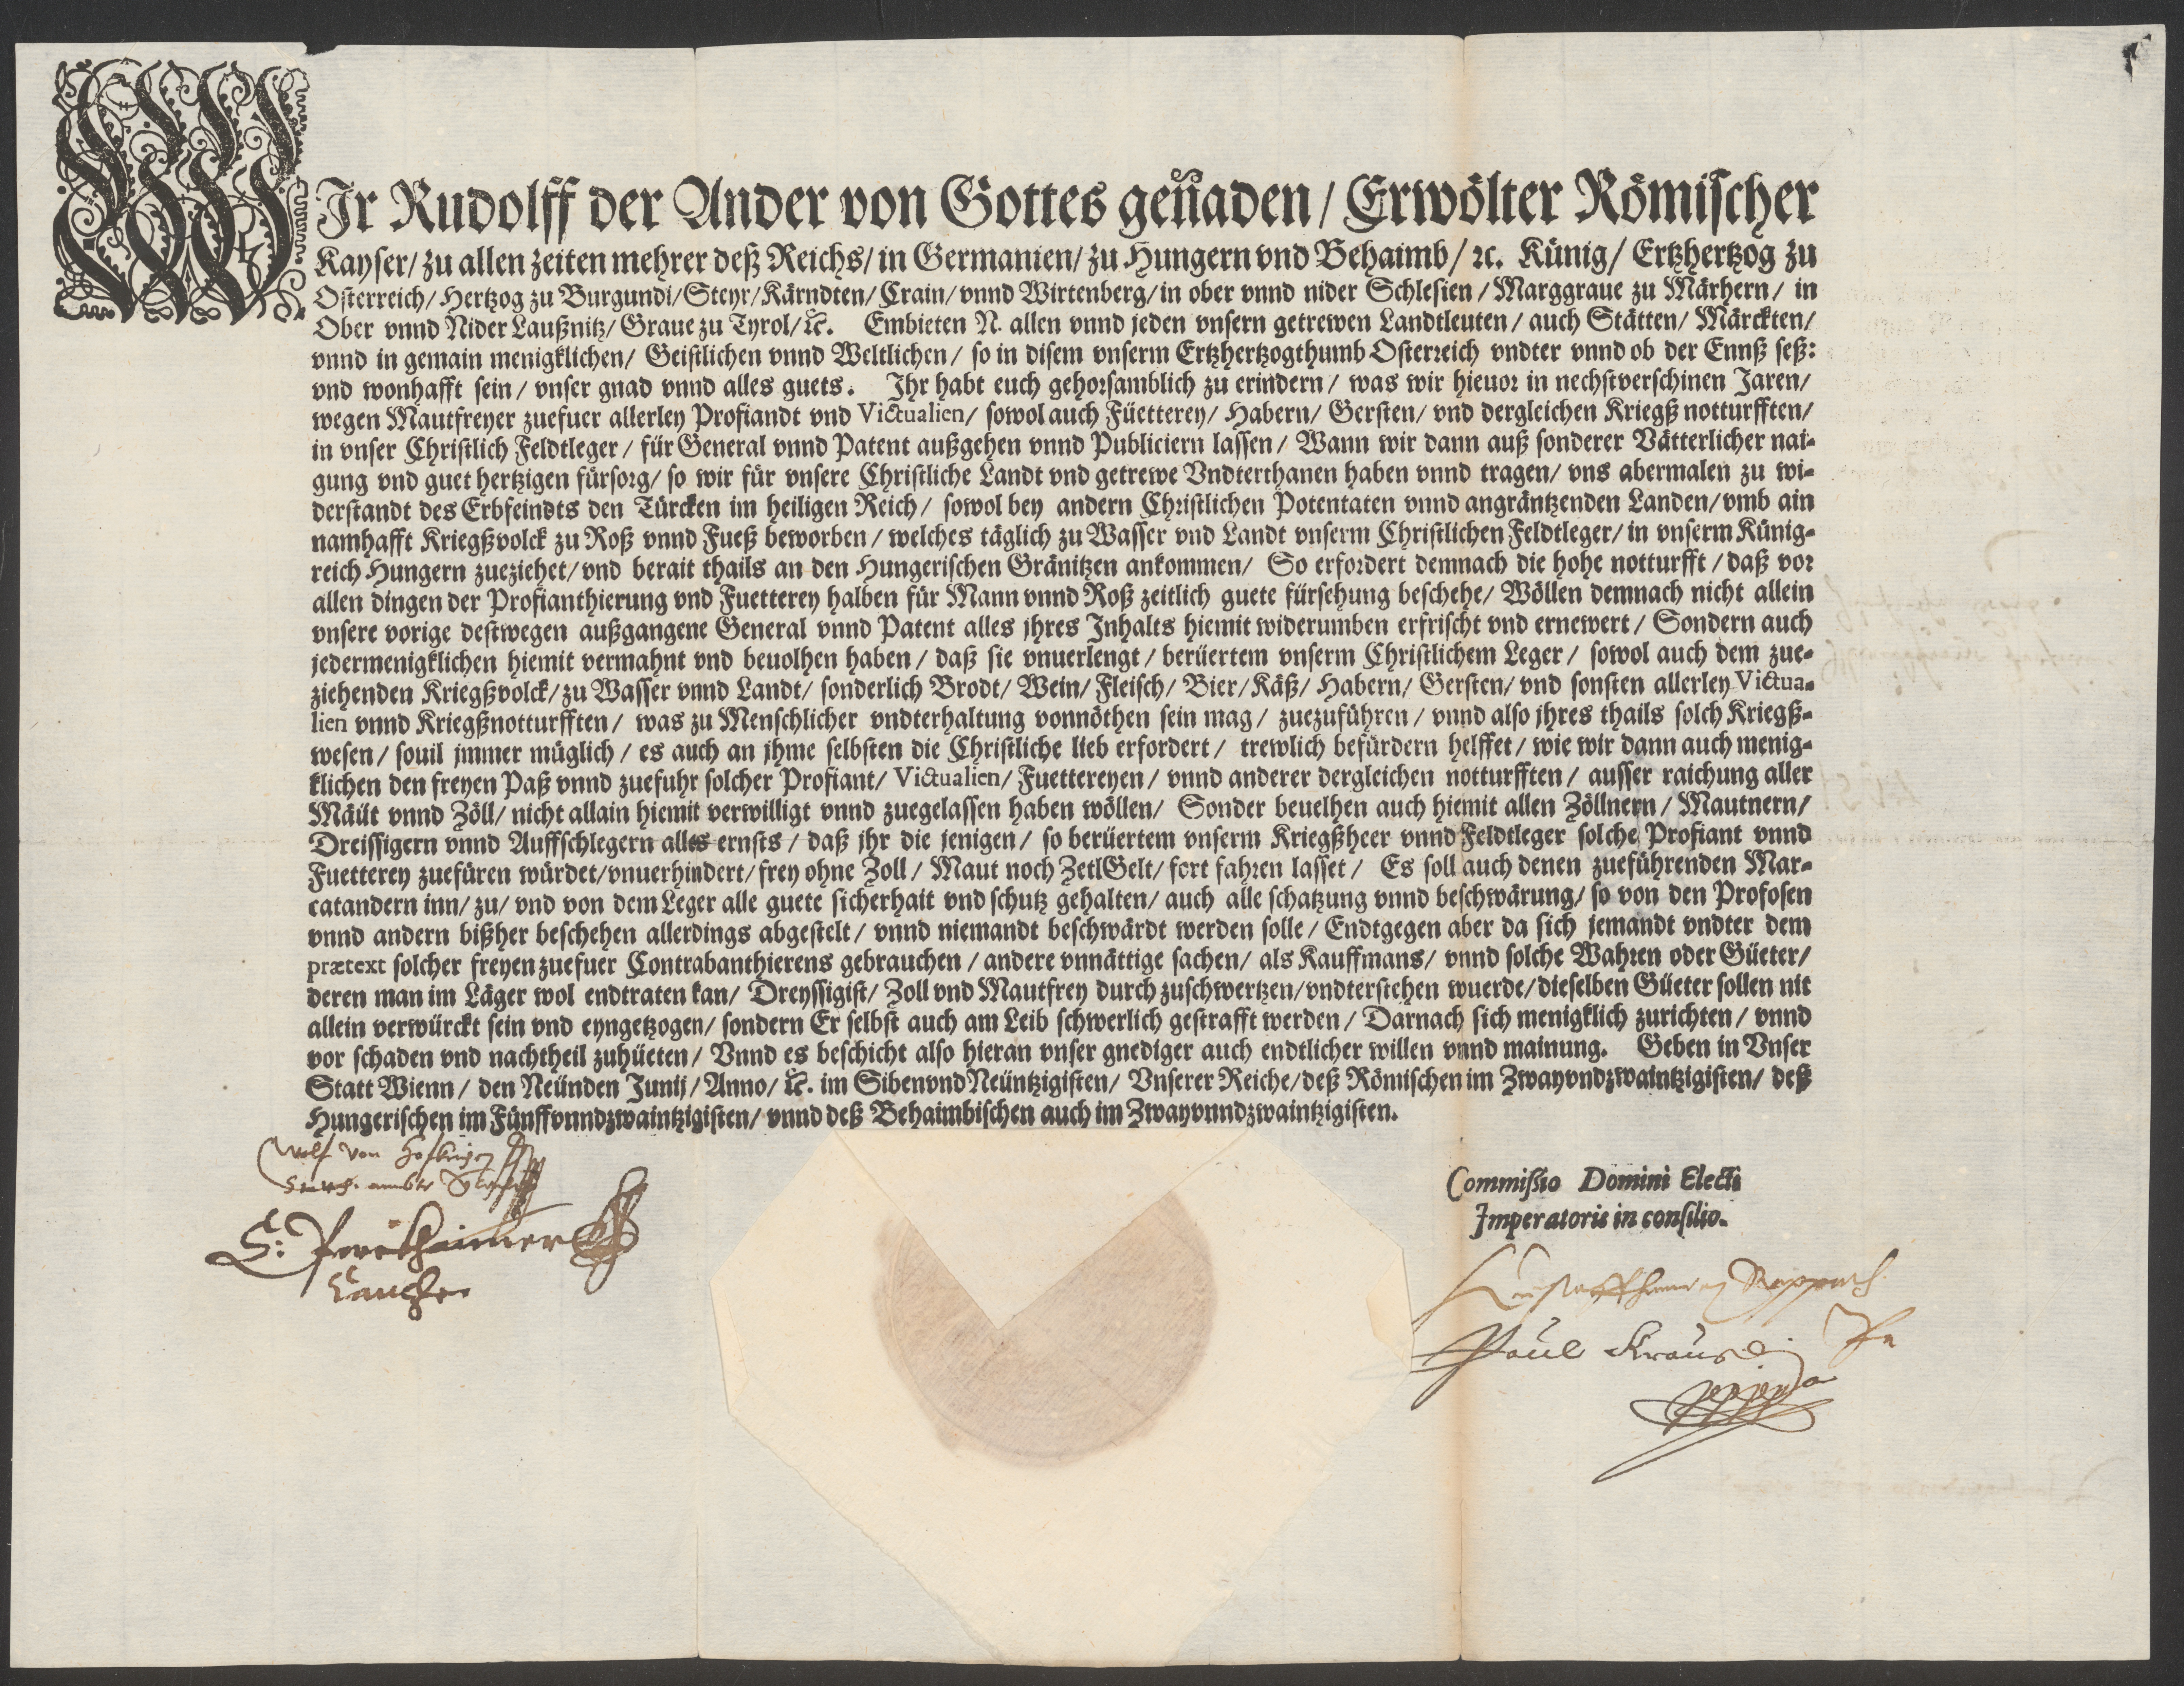 WIr Rudolff der Ander von Gottes genaden / Erwölter Römischer
Kayser / zu allen zeiten mehrer deß Reichs / in Germanien / zu Hungern vnd Behaimb / ꝛc. Künig / Ertzhertzog zu
Osterreich / Hertzog zu Burgundi / Steyr / Kärndten / Crain / vnnd Wirtenberg / in ober vnnd nider Schlesien / Marggraue zu Märhern / in
Ober vnnd Nider Laußnitz / Graue zu Tyrol / ꝛc. Embieten N. allen vnnd jeden vnsern getrewen Landtleuten / auch Stätten / Märckten /
vnnd in gemain menigklichen / Geistlichen vnnd Weltlichen / so in disem vnserm Ertzhertzogthumb Osterreich vndter vnnd ob der Ennß seß:
vnd wonhafft sein / vnser gnad vnnd alles guets. Ihr habt euch gehorsamblich zu erindern / was wir hieuor in nechstverschinen Jaren /
wegen Mautfreyer zuefuer allerley Profiandt vnd Victualien / sowol auch Füetterey / Habern / Gersten / vnd dergleichen Kriegß notturfften /
in vnser Christlich Feldtleger / für General vnnd Patent außgehen vnnd Publiciern lassen / Wann wir dann auß sonderer Vätterlicher nai-
gung vnd guet hertzigen fürsorg / so wir für vnsere Christliche Landt vnd getrewe Vndterthanen haben vnnd tragen / vns abermalen zu wi-
derstandt des Erbfeindts den Türcken im heiligen Reich / sowol bey andern Christlichen Potentaten vnnd angräntzenden Landen / vmb ain
namhafft Kriegßvolck zu Roß vnnd Fueß beworben / welches täglich zu Wasser vnd Landt vnserm Christlichen Feldtleger / in vnserm Künig-
reich Hungern zueziehet / vnd berait thails an den Hungerischen Gränitzen ankommen / So erfordert demnach die hohe notturfft / daß vor
allen dingen der Profianthierung vnd Fuetterey halben für Mann vnnd Roß zeitlich guete fürsehung beschehe / Wöllen demnach nicht allein
vnsere vorige destwegen außgangene General vnnd Patent alles jhres Inhalts hiemit widerumben erfrischt vnd ernewert / Sondern auch
jedermenigklichen hiemit vermahnt vnd beuolhen haben / daß sie vnuerlengt / berüertem vnserm Christlichem Leger / sowol auch dem zue-
ziehenden Kriegßvolck / zu Wasser vnnd Landt / sonderlich Brodt / Wein / Fleisch / Bier / Käß / Habern / Gersten / vnd sonsten allerley Victua-
lien vnnd Kriegßnotturfften / was zu Menschlicher vndterhaltung vonnöthen sein mag / zuezuführen / vnnd also jhres thails solch Kriegß-
wesen / souil jmmer müglich / es auch an jhme selbsten die Christliche lieb erfordert / trewlich befürdern helffet / wie wir dann auch menig-
klichen den freyen Paß vnnd zuefuhr solcher Profiant / Victualien / Fuettereyen / vnnd anderer dergleichen notturfften / ausser raichung aller
Mäüt vnnd Zöll / nicht allain hiemit verwilligt vnnd zuegelassen haben wöllen / Sonder beuelhen auch hiemit allen Zöllnern / Mautnern /
Dreissigern vnnd Auffschlegern alles ernsts / daß jhr die jenigen / so berüertem vnserm Kriegßheer vnnd Feldtleger solche Profiant vnnd
Fuetterey zuefüren würdet / vnuerhindert / frey ohne Zoll / Maut noch ZetlGelt / fort fahren lasset / Es soll auch denen zueführenden Mar-
catandern inn / zu / vnd von dem Leger alle guete sicherhait vnd schutz gehalten / auch alle schatzung vnnd beschwärung / so von den Profosen
vnnd andern bißher beschehen allerdings abgestelt / vnnd niemandt beschwärdt werden solle / Endtgegen aber da sich jemandt vndter dem
prætext solcher freyen zuefuer Contrabanthierens gebrauchen / andere vnnättige sachen / als Kauffmans / vnnd solche Wahren oder Güeter /
deren man im Läger wol endtraten kan / Dreyssigist / Zoll vnd Mautfrey durch zuschwertzen / vndterstehen wuerde / dieselben Güeter sollen nit
allein verwürckt sein vnd eyngetzogen / sondern Er selbst auch am Leib schwerlich gestrafft werden / Darnach sich menigklich zurichten / vnnd
vor schaden vnd nachtheil zuhüeten / Vnnd es beschicht also hieran vnser gnediger auch endtlicher willen vnnd mainung. Geben in Vnser
Statt Wienn / den Neünden Junij / Anno / ꝛc. im SibenvndNeüntzigisten / Vnserer Reiche / deß Römischen im Zwayvndzwaintzigisten / deß
Hungerischen im Fünffvnndzwaintzigisten / vnnd deß Behaimbischen auch im Zwayvnndzwaintzigisten.
Wolf von
Commißio Domini Electi
Imperatoris in consilio.
Paul Kraus